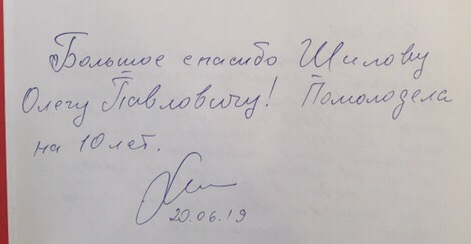 Большое спасибо Шилову
Олегу Павловичу! Помолодела
на 10 лет.
20.06.19